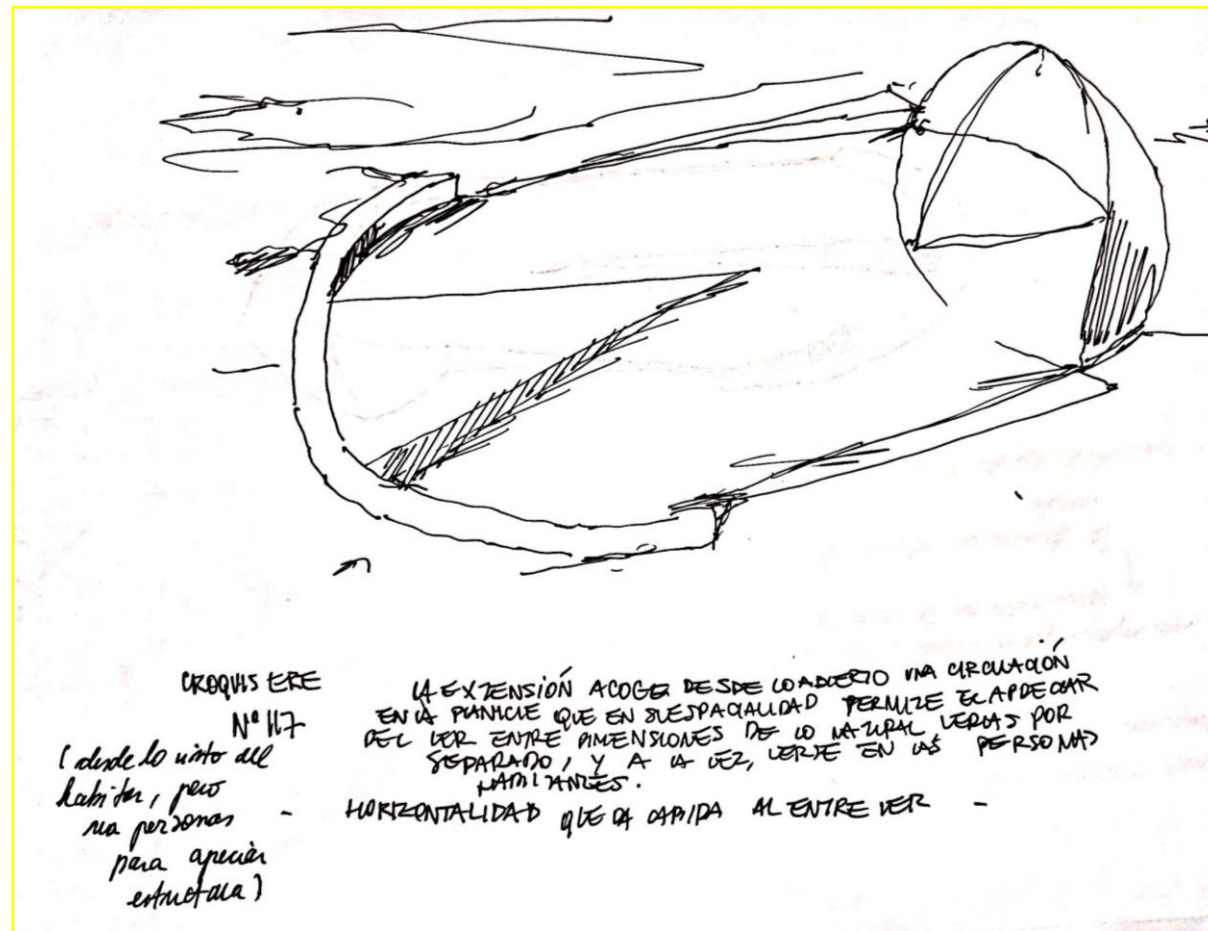 CROQUIS ERE
Nº 117
(desde lo visto del
habitar, pero
personas
para apreciar
estructura)
LA EXTENSIÓN ACOGE DESDE LO ABIERTO UNA CIRCULACIÓN
EN LA PLANICIE QUE EN SU ESPACIALIDAD PERMITE EL APRECIAR
DEL VER ENTRE DIMENSIONES DE LO NATURAL VERLAS POR
SEPARADO, Y A LA VEZ, VERSE EN LAS PERSONAS
HABITANTES.
- HORIZONTALIDAD QUE DA CABIDA AL ENTRE VER -